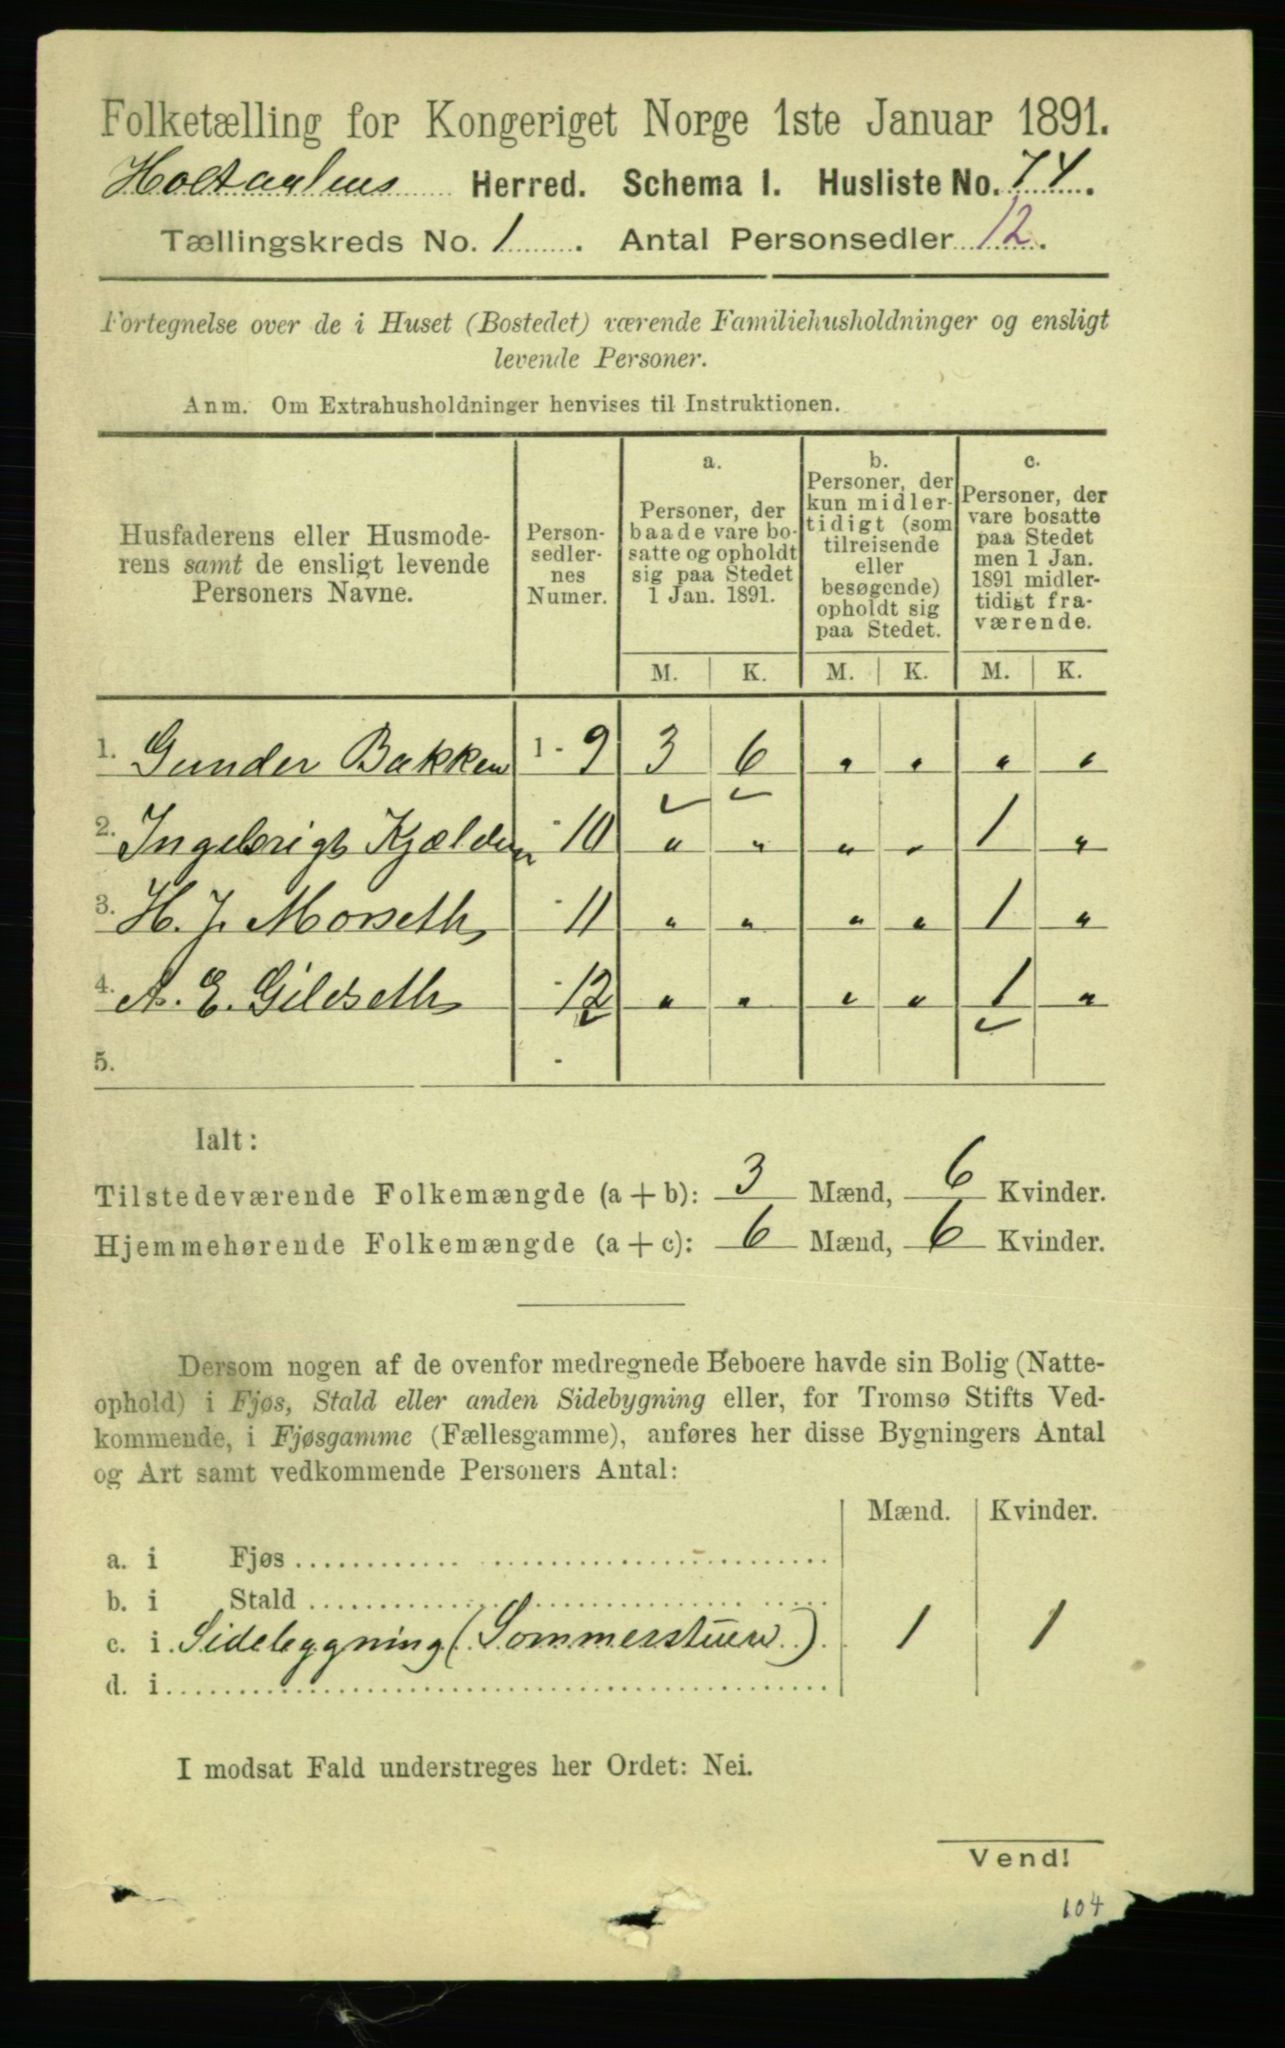 Folketælling for Kongeriget Norge 1ste Januar 1891.
Holtaalens Herred. Schema 1. Husliste No. 74.
Tællingskreds No. 1. Antal Personsedler 12.
Fortegnelse over de i Huset (Bostedet) værende Familiehusholdninger og ensligt
levende Personer.
Anm. Om Extrahusholdninger henvises til Instruktionen.
Husfaderens eller Husmode-
rens samt de ensligt levende
Personers Navne.
Person-
sedler-
nes
Numer.
a.
Personer, der
baade vare bo-
satte og opholdt
sig paa Stedet
1 Jan. 1891.
b.
Personer, der
kun midler-
tidigt (som
tilreisende
eller
besøgende)
opholdt sig
paa Stedet.
c.
Personer, der
vare bosatte
paa Stedet
men 1 Jan.
1891 midler-
tidigt fra-
værende.
M. K. M. K. M. K.
1. Gunder Bakken 1 - 9 3 6 " " " "
2. Ingebrigt Kjelden - 10 " " " " 1 "
3. H. J. Morseth - 11 " " " " 1 "
4. A. E. Gildseth - 12 " " " " 1 "
5. -
Ialt:
Tilstedeværende Folkemængde (a + b): 3 Mænd, 6 Kvinder.
Hjemmehørende Folkemængde (a + c): 6 Mænd, 6 Kvinder.
Dersom nogen af de ovenfor medregnede Beboere havde sin Bolig (Natte-
ophold) i Fjøs, Stald eller anden Sidebygning eller, for Tromsø Stifts Ved-
kommende, i Fjøsgamme (Fællesgamme), anføres her disse Bygningers Antal
og Art samt vedkommende Personers Antal:
Mænd. Kvinder.
a. i Fjøs
b. i Stald
c. i Sidebygning (Sommerstuen) 1 1
d. i
I modsat Fald understreges her Ordet: Nei.
Vend!
104